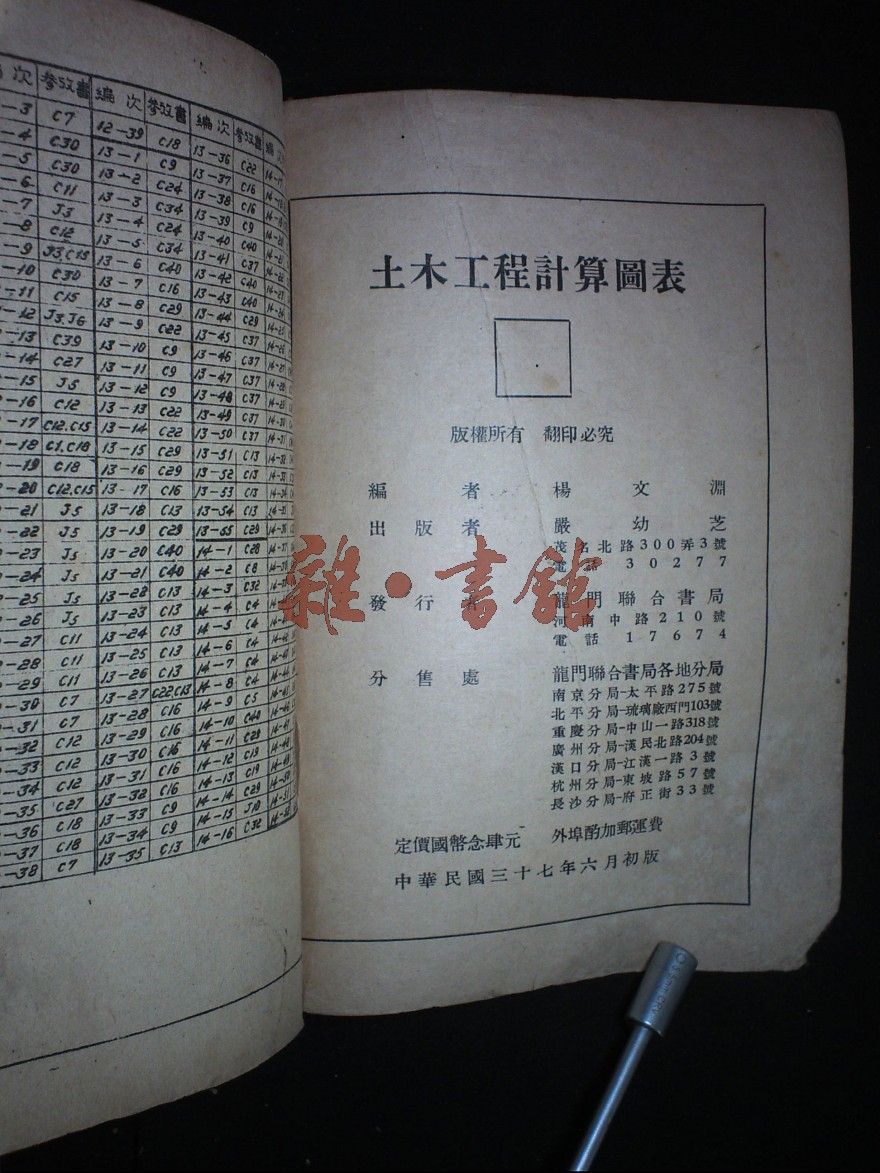 次 參攷書 編次 參攷書 編次 參攷書 編
-3 C7 12-39 C18 13-36 C22
-4 C30 13-1 C9 13-37 C16
-5 C30 13-2 C24 13-38 C16
-6 C11 13-3 C34 13-39 C9
-7 J3 13-4 C24 13-40 C40
-8 C12 13-5 C34 13-41 C37
-9 J3.C15 13-6 C40 13-42 C40
-10 C30 13-7 C16 13-43 C40
-11 C15 13-8 C29 13-44 C29
-12 J3.J6 13-9 C22 13-45 C37
-13 C39 13-10 C9 13-46 C37
-14 C27 13-11 C9 13-47 C37
-15 J5 13-12 C9 13-48 C37
-16 C12 13-13 C22 13-49 C37
-17 C12.C15 13-14 C22 13-50 C37
-18 C1.C18 13-15 C29 13-51 C13
-19 C18 13-16 C29 13-52 C13
-20 C12.C15 13-17 C16 13-53 C13
-21 J5 13-18 C13 13-54 C13
-22 J5 13-19 C29 13-55 C29
-23 J5 13-20 C40 14-1 C28
-24 J5 13-21 C40 14-2 C8
-25 J5 13-22 C13 14-3 C32
-26 J5 13-23 C13 14-4 C4
-27 C11 13-24 C13 14-5 C4
-28 C11 13-25 C13 14-6 C4
-29 C11 13-26 C13 14-7 C4
-30 C7 13-27 C22,C13 14-8 C4
-31 C7 13-28 C16 14-9 C5
-32 C12 13-29 C16 14-10 C40
-33 C12 13-30 C16 14-11 C29
-34 C12 13-31 C16 14-12 C13
-35 C27 13-32 C16 14-13 C19
-36 C18 13-33 C9 14-14 C29
-37 C18 13-34 C9 14-15 J10
-38 C7 13-35 C13 14-16 C32
土木工程計算圖表
版權所有 翻印必究
編者 楊文淵
出版者 嚴幼芝
茂名北路300弄3號
電話 30277
發行者 龍門聯合書局
河南中路210號
電話 17674
分售處 龍門聯合書局各地分局
南京分局—太平路275號
北平分局—琉璃廠西門103號
重慶分局—中山一路318號
廣州分局—漢民北路204號
漢口分局—江漢一路3號
杭州分局—東坡路57號
長沙分局—府正街33號
定價國幣念肆元 外埠酌加郵運費
中華民國三十七年六月初版
雜·書館